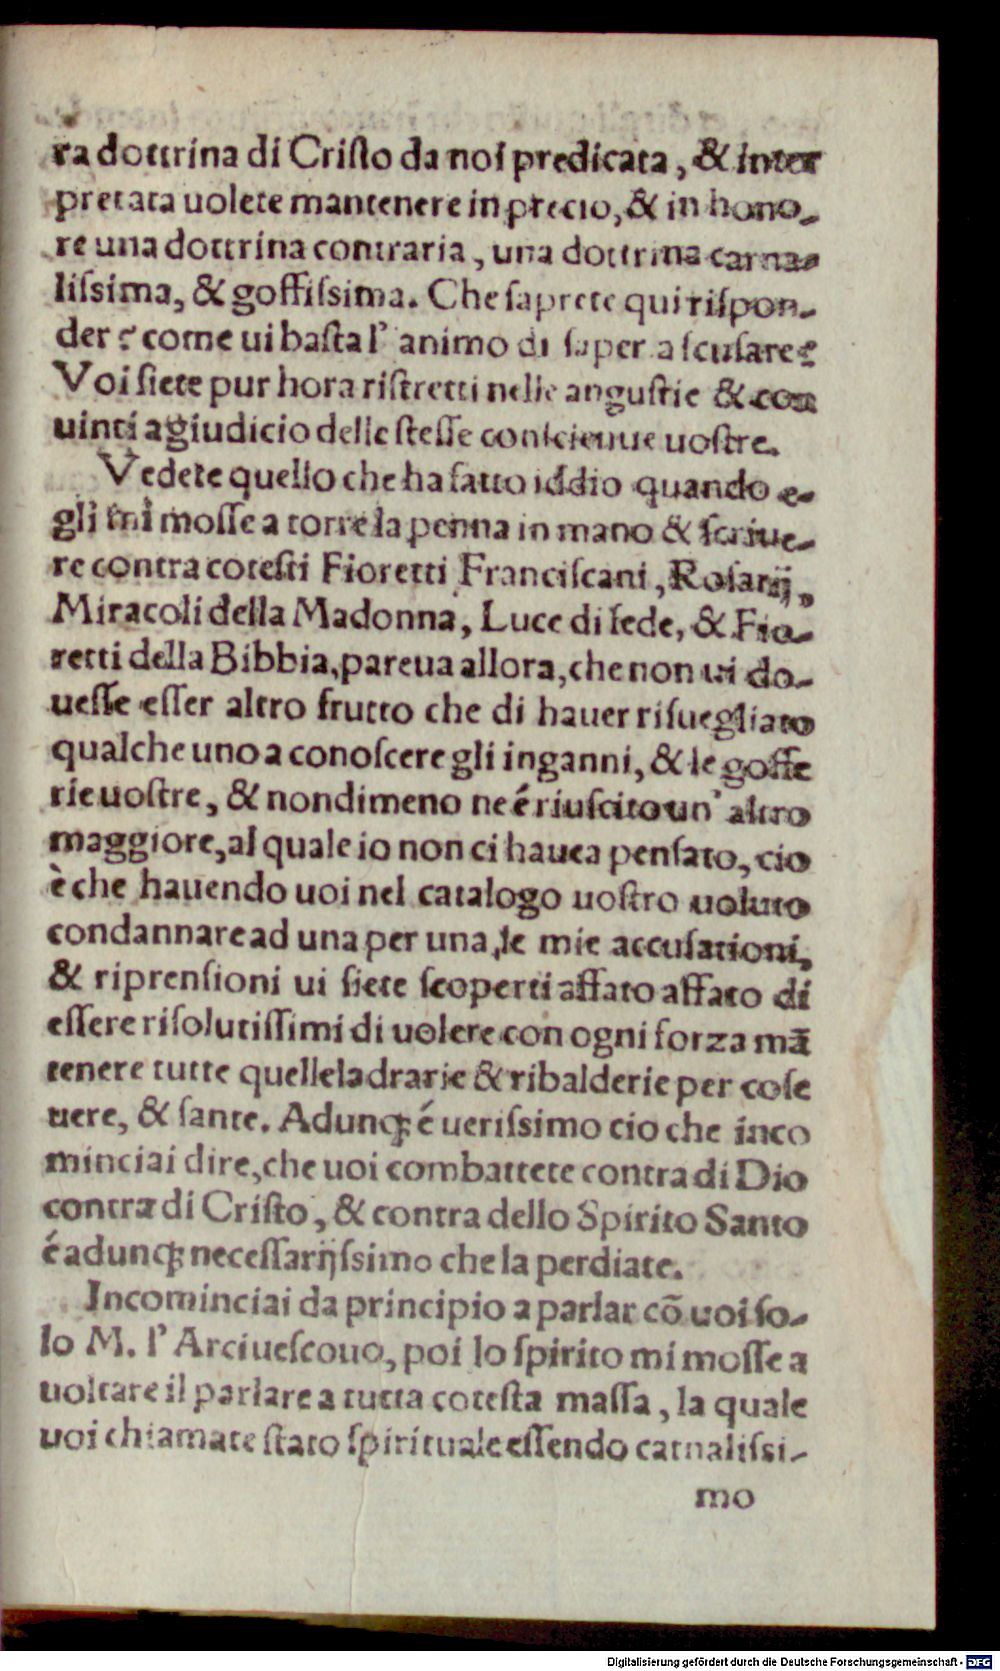 ra dottrina di Criſto da noi predicata, & inter
pretata uolete mantenere in precio, & in hono-
re una dottrina contraria, una dottrina carna-
liſsima, & goffiſsima. Che ſaprete qui riſpon-
der? come ui baſta l' animo di ſaper a ſcuſare?
Voi ſiete pur hora riſtretti nelle anguſtie & con
uinti a giudicio delle ſteſſe conſcienue uoſtre.
Vedete quello che ha fatto iddio quando e-
gli mi moſſe a torre la penna in mano & ſcriue-
re contra coteſti Fioretti Franciſcani, Roſarij,
Miracoli della Madonna, Luce di fede, & Fio-
retti della Bibbia, pareua allora, che non ui do-
ueſſe eſſer altro frutto che di hauer riſuegliato
qualche uno a conoſcere gli inganni, & le goffe
rie uoſtre, & nondimeno ne é riuſcito un' altro
maggiore, al quale io non ci hauea penſato, cio
è che hauendo uoi nel catalogo uoſtro uoluto
condannare ad una per una, le mie accuſationi,
& riprenſioni ui ſiete ſcoperti affato affato di
eſſere riſolutiſſimi di uolere con ogni forza mā
tenere tutte quelle ladrarie & ribalderie per coſe
uere, & ſante. Adunq; é ueriſsimo cio che inco
minciai dire, che uoi combattete contra di Dio
contra di Criſto, & contra dello Spirito Santo
é adunq; neceſſarijſsimo che la perdiate.
Incominciai da principio a parlar cō uoi ſo-
lo M. l' Arciueſcouo, poi lo ſpirito mi moſſe a
uoltare il parlare a tutta coteſta maſſa, la quale
uoi chiamate ſtato ſpirituale eſſendo carnaliſsi-
mo
Digitalisierung gefördert durch die Deutsche Forschungsgemeinschaft - DFG